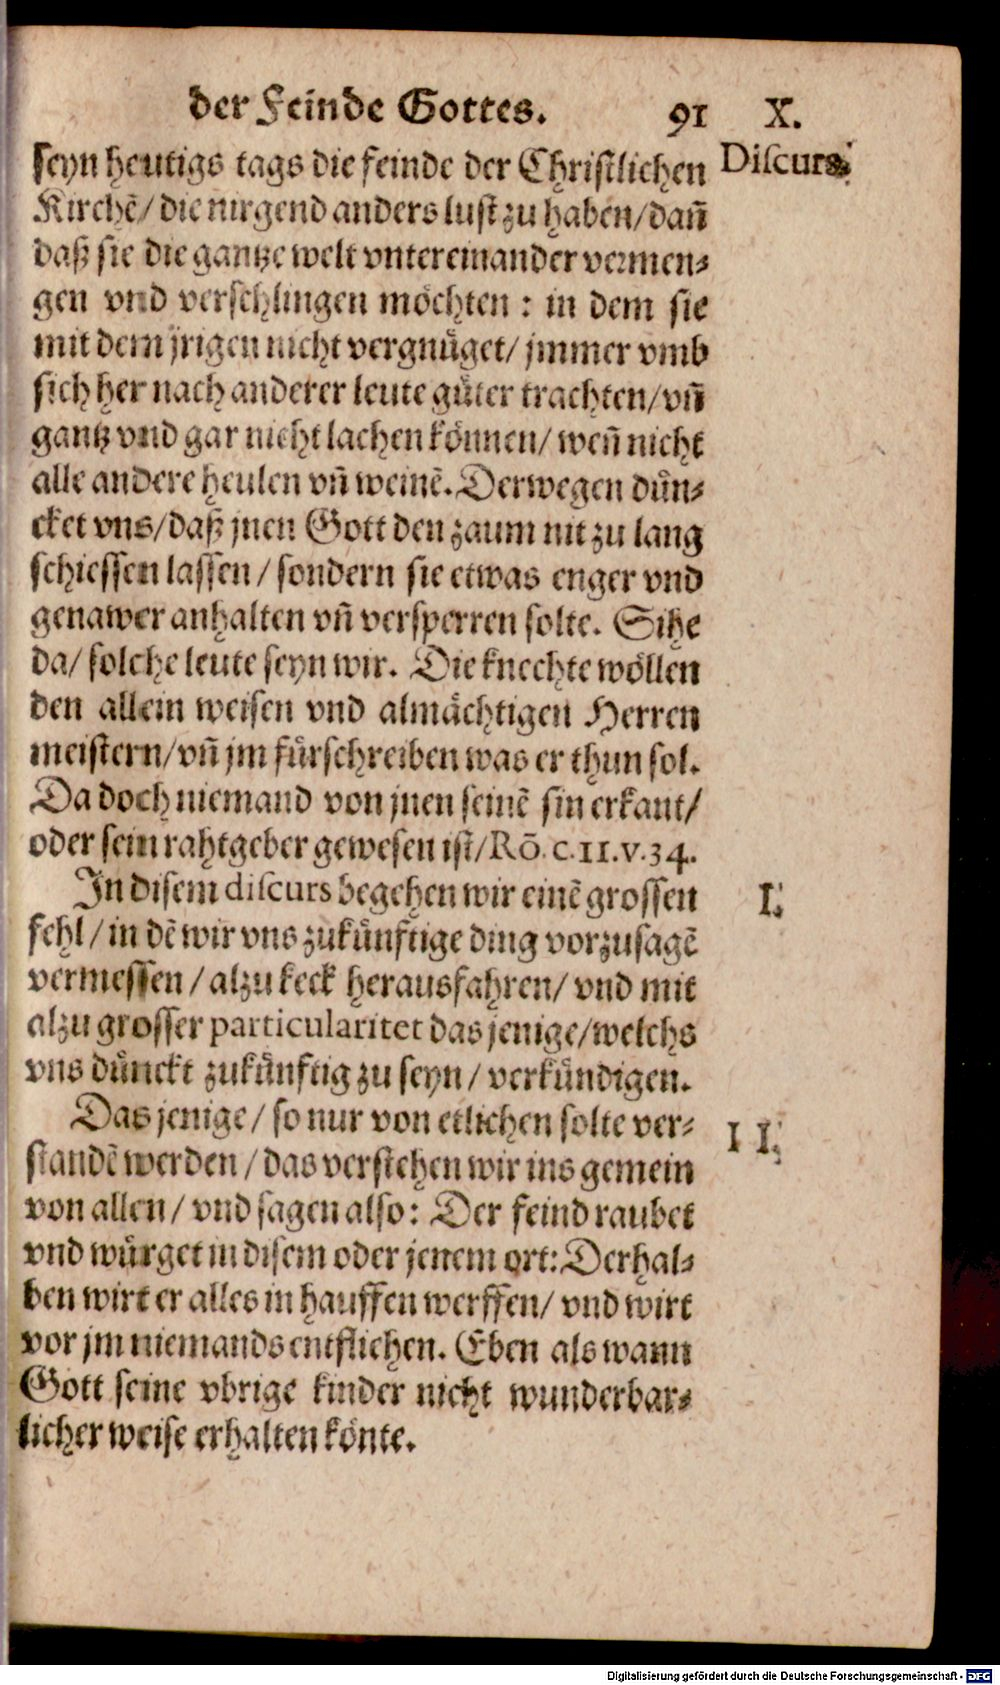 der Feinde Gottes. 91 X.
seyn heutigs tags die feinde der Christlichen Discurs.
Kirchẽ/ die nirgend anders lust zu haben/ dañ
daß sie die gantze welt vntereinander vermen-
gen vnd verschlingen möchten : in dem sie
mit dem jrigen nicht vergnüget/ jmmer vmb
sich her nach anderer leute güter trachten/ vñ
gantz vnd gar nicht lachen können/ weñ nicht
alle andere heulen vñ weinẽ. Derwegen dün-
cket vns/ daß jnen Gott den zaum nit zu lang
schiessen lassen / sondern sie etwas enger vnd
genawer anhalten vñ versperren solte. Sihe
da/ solche leute seyn wir. Die knechte wöllen
den allein weisen vnd almächtigen Herren
meistern/ vñ jm fürschreiben was er thun sol.
Da doch niemand von jnen seinẽ sin erkant/
oder sein rahtgeber gewesen ist/ Rõ. c.11.v.34.
In disem discurs begehen wir einẽ grossen I.
fehl / in dẽ wir vns zukünftige ding vorzusagẽ
vermessen / alzu keck herausfahren/ vnd mit
alzu grosser particularitet das jenige/ welchs
vns dünckt zukünftig zu seyn / verkündigen.
Das jenige / so nur von etlichen solte ver- II.
standẽ werden / das verstehen wir ins gemein
von allen / vnd sagen also: Der feind raubet
vnd würget in disem oder jenem ort: Derhal-
ben wirt er alles in hauffen werffen/ vnd wirt
vor jm niemands entfliehen. Eben als wann
Gott seine vbrige kinder nicht wunderbar-
licher weise erhalten könte.
Digitalisierung gefördert durch die Deutsche Forschungsgemeinschaft - DFG